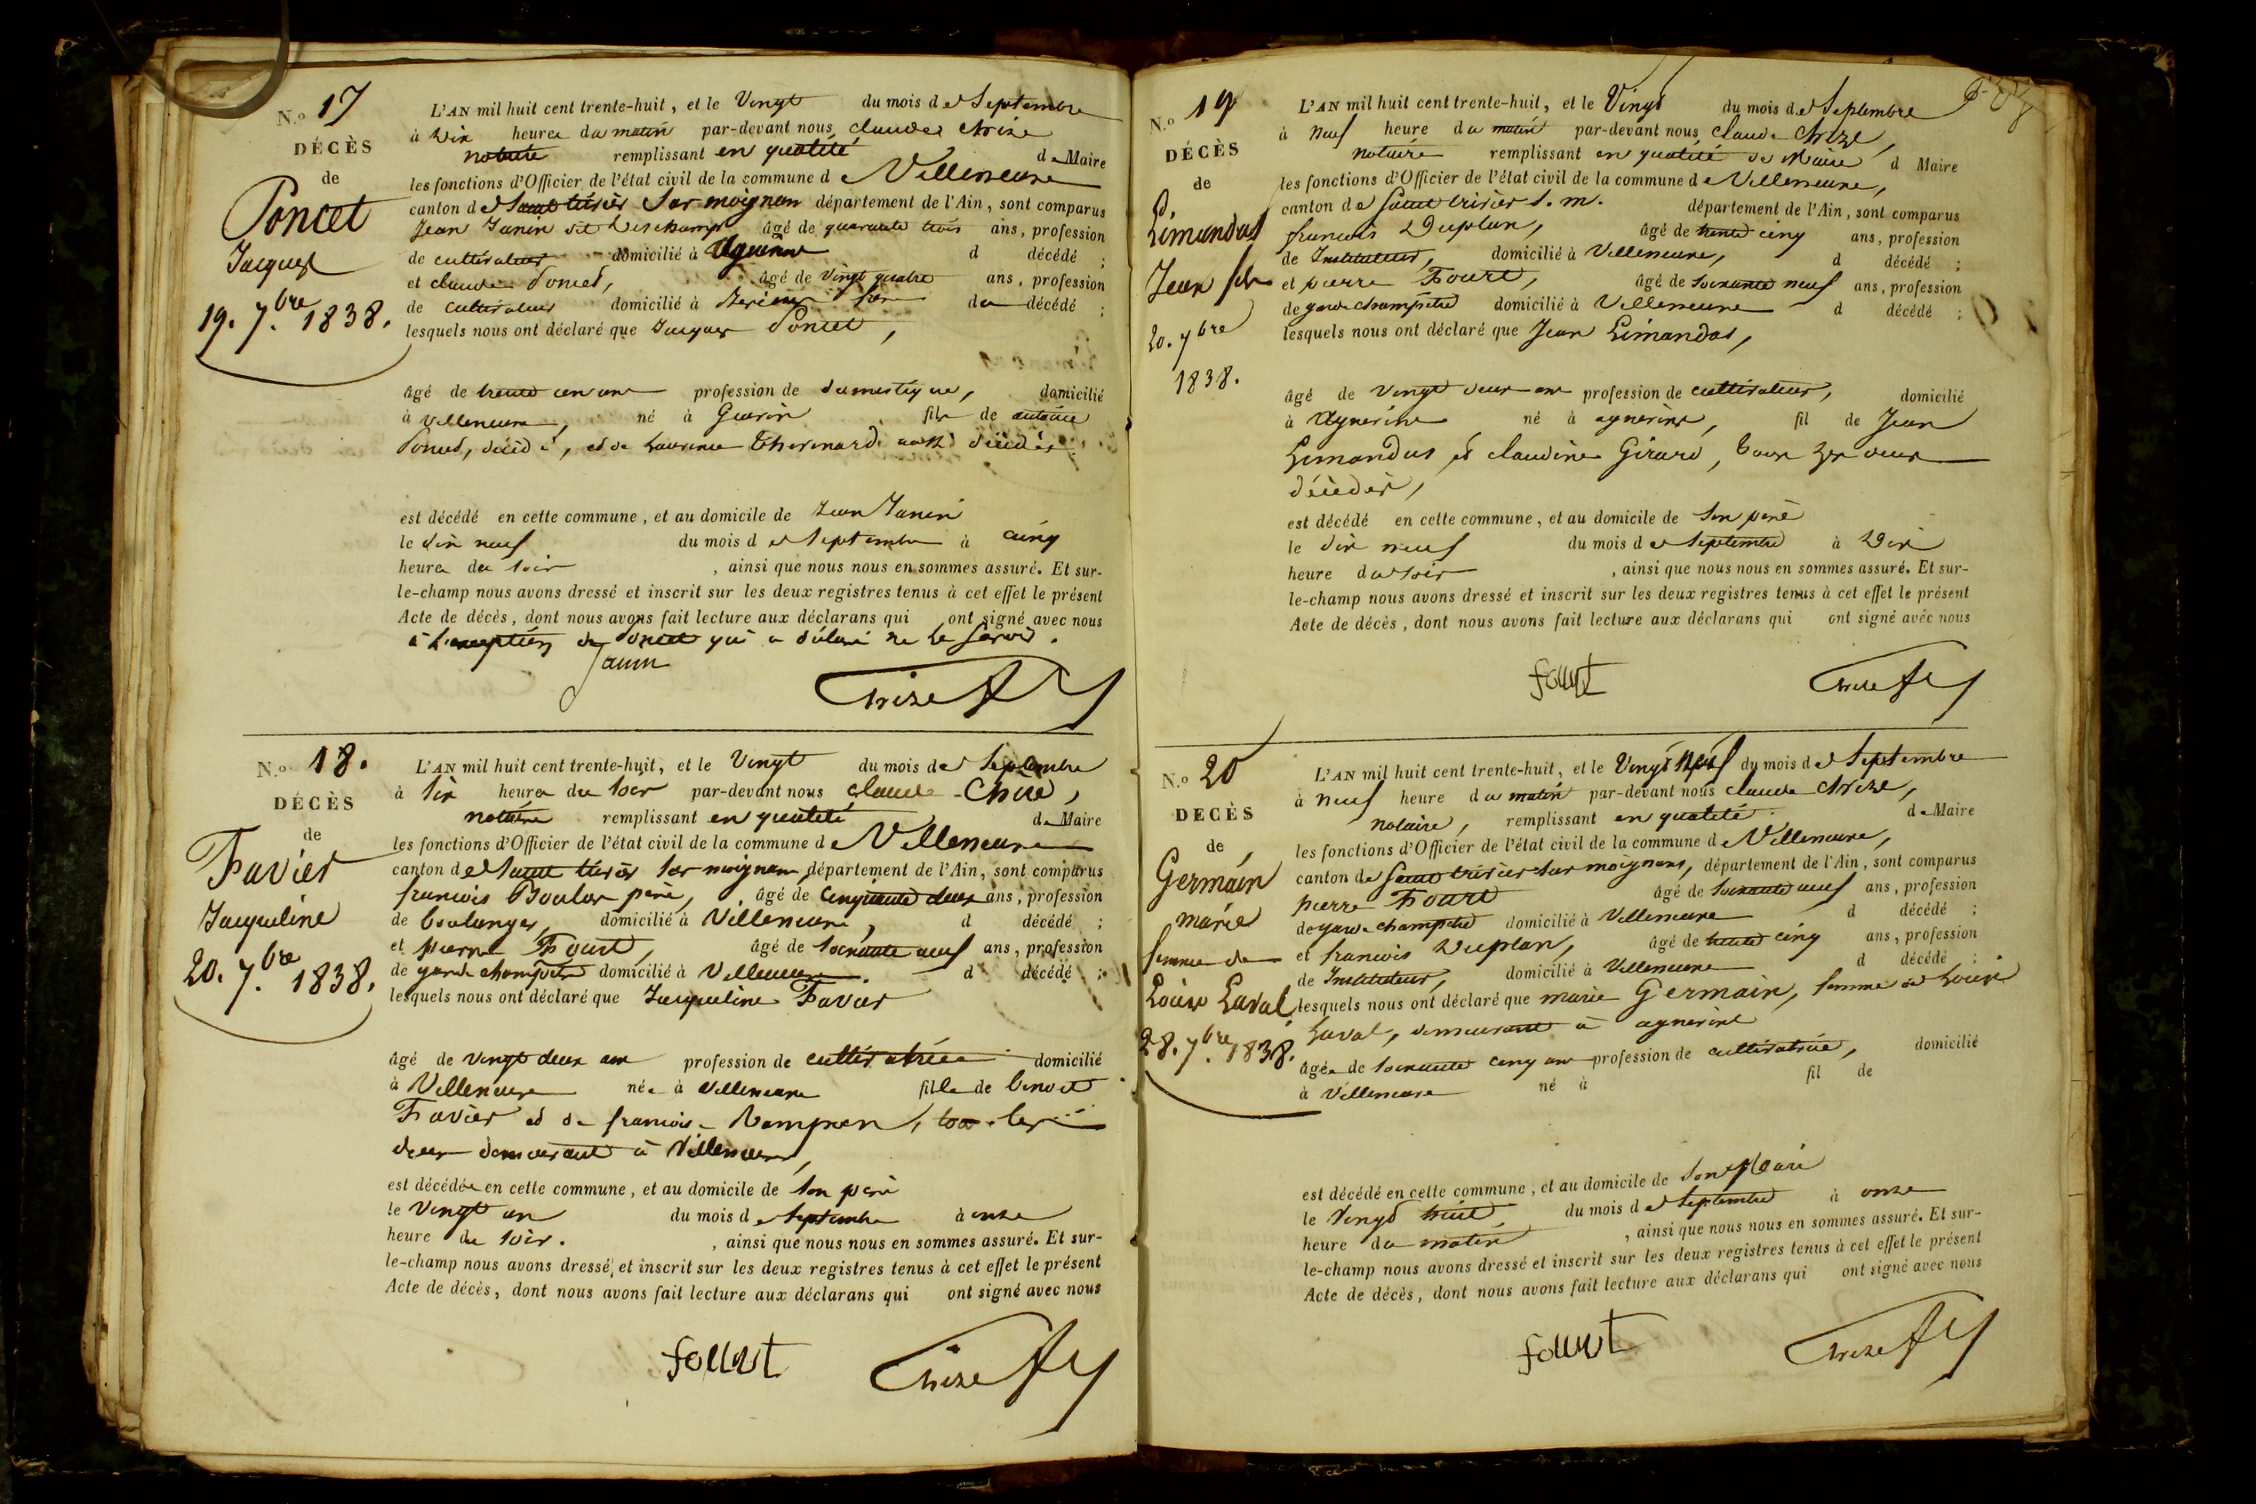 N.o 17
DÉCÈS
de
Poncet
Jacques
19. 7.bre 1838.
L'AN mil huit cent trente-huit, et le Vingt du mois de Septembre
à dix heures du matin par-devant nous claude Chize
notaire remplissant en qualité de Maire
les fonctions d'Officier de l'état civil de la commune de Villeneuve
canton de Saint trivier Sur moignan département de l'Ain, sont comparus
Jean Janin dit Deschamps âgé de quarante trois ans, profession
de cultivateur domicilié à d décédé ;
et claude Poncet, âgé de vingt quatre ans, profession
de cultivateur domicilié à du décédé ;
lesquels nous ont déclaré que Jacques Poncet,
âgé de trente un ans profession de domestique, domicilié
à villeneuve, né à fils de antoine
Poncet, décédé, et de Laurence aussi décédée
est décédé en cette commune, et au domicile de Jean Janin
le dix neuf du mois de Septembre à cinq
heures du soir , ainsi que nous nous en sommes assuré. Et sur-
le-champ nous avons dressé et inscrit sur les deux registres tenus à cet effet le présent
Acte de décès, dont nous avons fait lecture aux déclarans qui ont signé avec nous
à l'exception de Poncet qui a déclaré ne le savoir.
Janin
Chize
N.o 18.
DÉCÈS
de
Favier
Jacqueline
20. 7.bre 1838.
L'AN mil huit cent trente-huit, et le Vingt du mois de Septembre
à six heures du soir par-devant nous claude Chize,
notaire remplissant en qualité de Maire
les fonctions d'Officier de l'état civil de la commune de Villeneuve
canton de Saint trivier Sur moignan, département de l'Ain, sont comparus
francois père, âgé de cinquante deux ans, profession
de boulanger, domicilié à Villeneuve, d décédé ;
et pierre Fourt, âgé de soixante neuf ans, profession
de garde champêtre domicilié à Villeneuve. d décédé ;
lesquels nous ont déclaré que Jacqueline Favier
âgé de vingt deux ans profession de cultivatrice domicilié
à Villeneuve née à villeneuve fille de benoit
Favier et de francoise tous les
deux demeurant à Villeneuve,
est décédée en cette commune, et au domicile de son père
le Vingt un du mois de Septembre à onze
heure du soir. , ainsi que nous nous en sommes assuré. Et sur-
le-champ nous avons dressé et inscrit sur les deux registres tenus à cet effet le présent
Acte de décès, dont nous avons fait lecture aux déclarans qui ont signé avec nous
fourt
Chize
N.o 19
DÉCÈS
de
Limandas
Jean fils
20. 7bre
1838.
L'AN mil huit cent trente-huit, et le Vingt du mois de Septembre
à neuf heure du matin par-devant nous claude Chize,
notaire remplissant en qualité de Maire d Maire
les fonctions d'Officier de l'état civil de la commune de Villeneuve,
canton de Saint trivier s. m. département de l'Ain, sont comparus
francois Duplan, âgé de trente cinq ans, profession
de Instituteur, domicilié à Villeneuve, d décédé ;
et pierre Fourt, âgé de soixante neuf ans, profession
de garde champêtre domicilié à Villeneuve d décédé ;
lesquels nous ont déclaré que Jean Limandas,
âgé de vingt deux ans profession de cultivateur, domicilié
à agnerins né à agnerins, fil de Jean
Limandas et claudine Girard, tous les deux
décédés,
est décédé en cette commune, et au domicile de son père
le dix neuf du mois de Septembre à Dix
heure du soir , ainsi que nous nous en sommes assuré. Et sur-
le-champ nous avons dressé et inscrit sur les deux registres tenus à cet effet le présent
Acte de décès, dont nous avons fait lecture aux déclarans qui ont signé avec nous
fourt
Chize
N.o 20
DÉCÈS
de
Germain
marie
femme de
Louis Laval
28. 7.bre 1838.
L'AN mil huit cent trente-huit, et le Vingt neuf du mois de Septembre
à neuf heure du matin par-devant nous claude Chize,
notaire, remplissant en qualité de Maire
les fonctions d'Officier de l'état civil de la commune de Villeneuve,
canton de Saint trivier sur moignans, département de l'Ain, sont comparus
pierre Fourt âgé de soixante neuf ans, profession
de garde champêtre domicilié à Villeneuve d décédé ;
et francois Duplan, âgé de trente cinq ans, profession
de Instituteur, domicilié à Villeneuve d décédé ;
lesquels nous ont déclaré que marie Germain, femme de Louis
Laval, demeurant à agnerins
âgée de soixante cinq ans profession de cultivatrice, domicilié
à Villeneuve né à fil de
est décédé en cette commune, et au domicile de son Mari
le Vingt huit du mois de Septembre à onze
heure du matin , ainsi que nous nous en sommes assuré. Et sur-
le-champ nous avons dressé et inscrit sur les deux registres tenus à cet effet le présent
Acte de décès, dont nous avons fait lecture aux déclarans qui ont signé avec nous
fourt
Chize